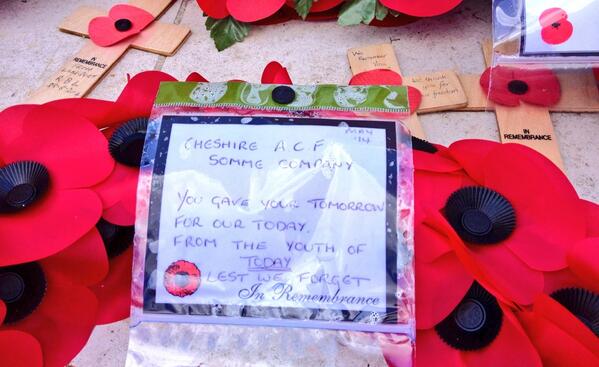 IN REMEMBRANCE
We Remember
You
We thank
you for our
freedom
CHESHIRE A.C.F
MAY '14
SOMME COMPANY
YOU GAVE YOUR TOMORROW
FOR OUR TODAY.
FROM THE YOUTH OF
TODAY
LEST WE FORGET
In Remembrance
IN
REMEMBRANCE